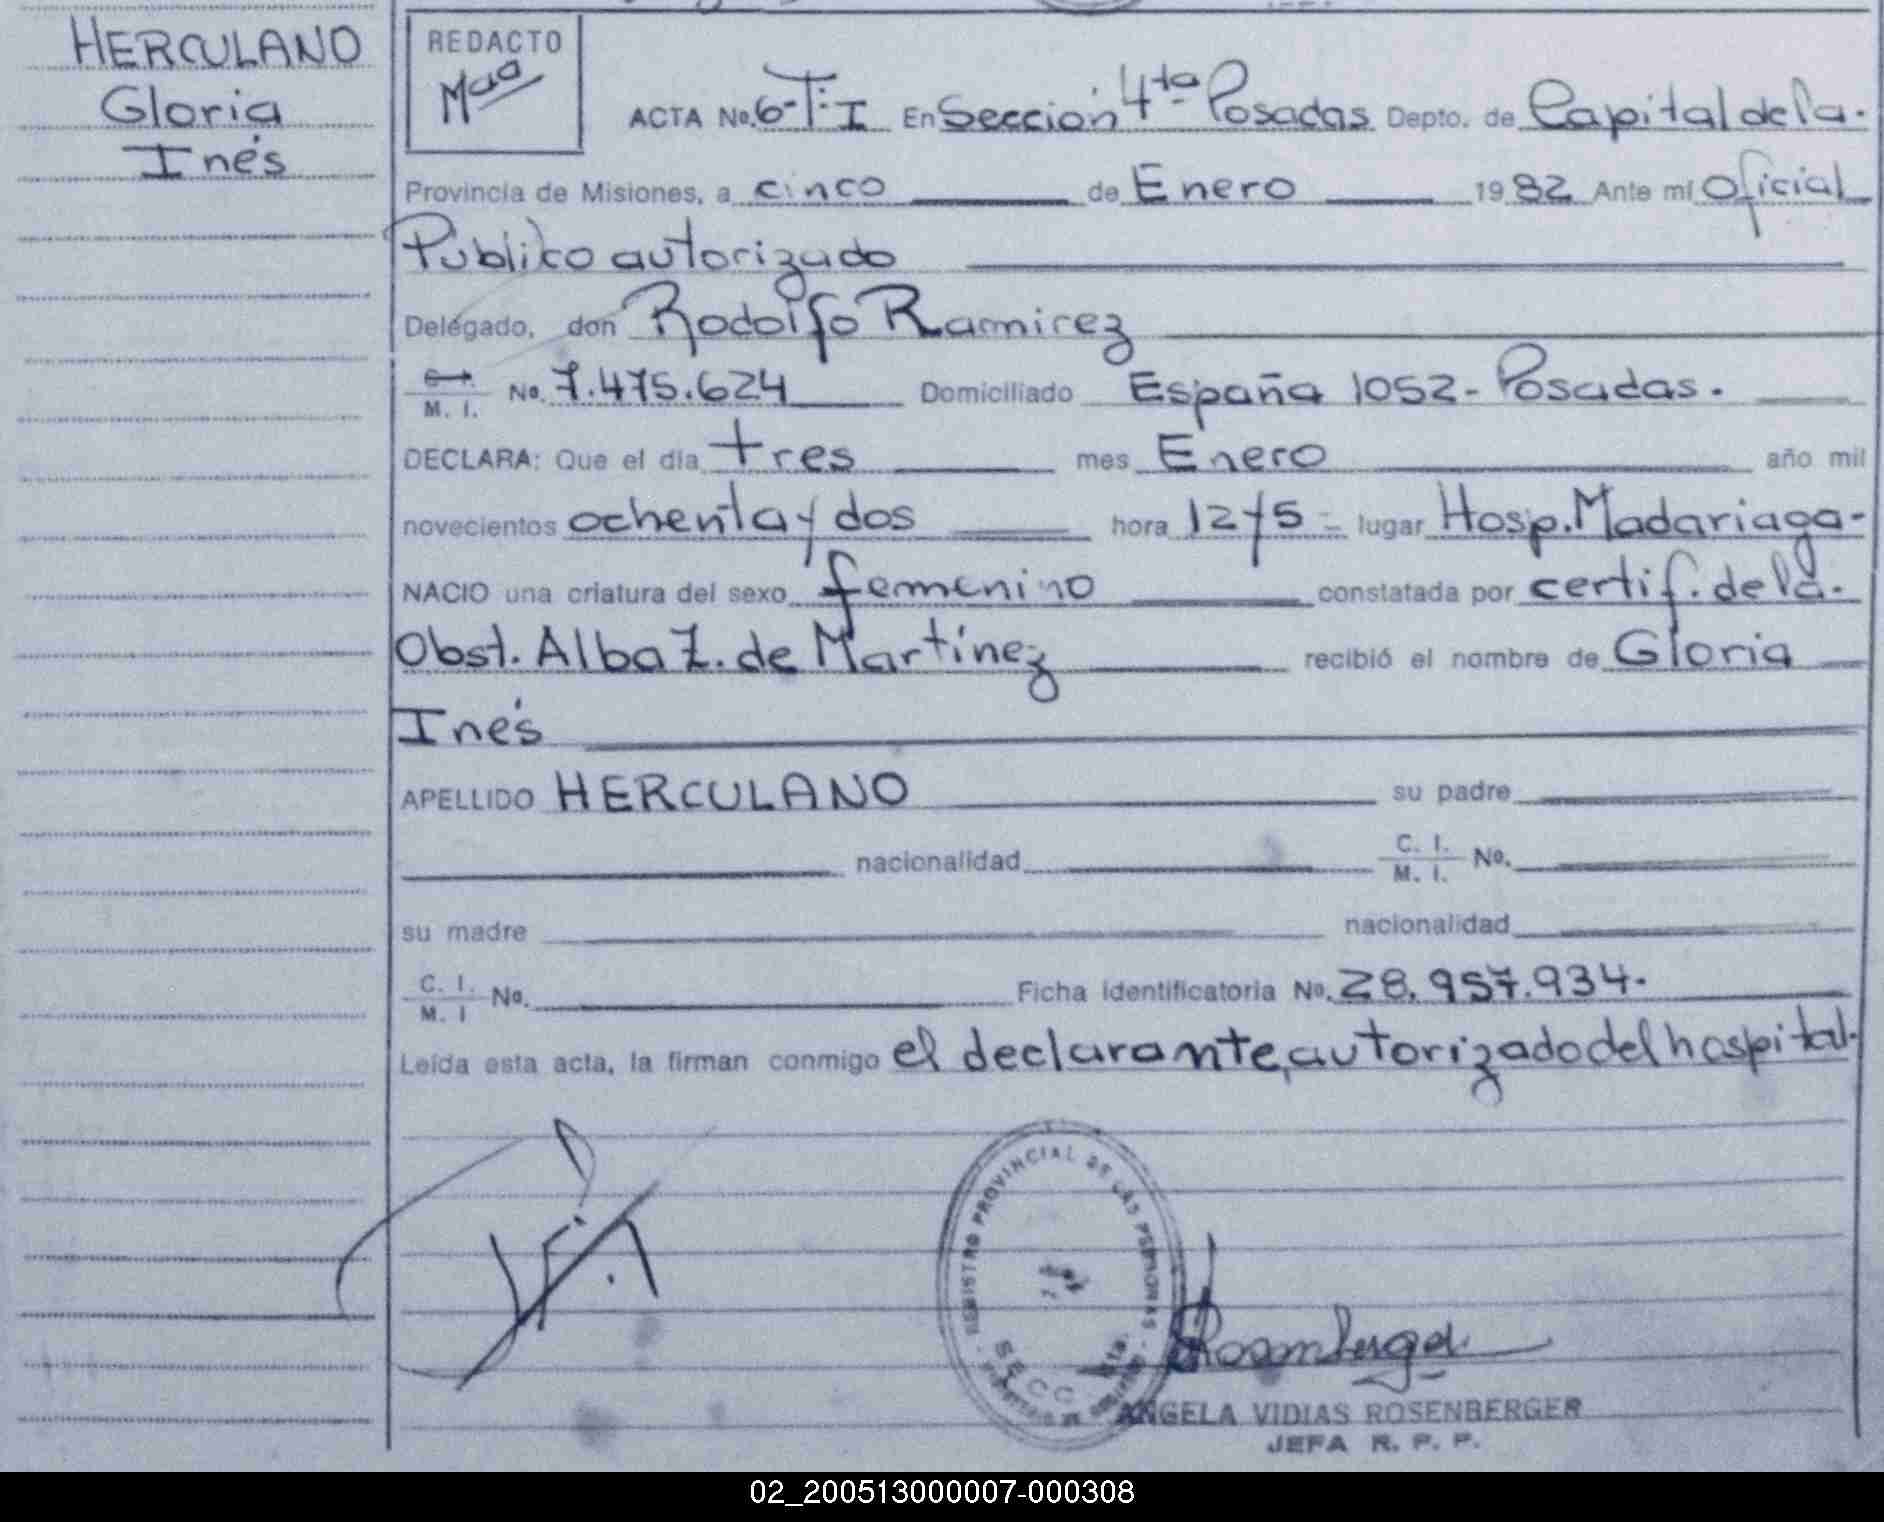 HERCULANO
Gloria
Inés
REDACTO
ACTA No. 6-T-I En Sección 4ta Posadas Depto. de Capital de la.
Provincia de Misiones, a cinco de Enero 1982 Ante mí Oficial
Público autorizado
Delegado, don Rodolfo Ramirez
C. I.
M. I. No. 7.475.624 Domiciliado España 1052- Posadas.
DECLARA: Que el día tres mes Enero año mil
novecientos ochenta y dos hora 12 y 5 - lugar Hosp. Madariaga-
NACIO una criatura del sexo femenino constatada por certif. de la.
Obst. Alba Z. de Martínez recibió el nombre de Gloria
Inés
APELLIDO HERCULANO su padre
nacionalidad C. I.
M. I. No.
su madre nacionalidad
C. I.
M. I No. Ficha identificatoria No. 28.957.934.
Leída esta acta, la firman conmigo el declarante, autorizado del hospital.
REGISTRO PROVINCIAL DE LAS PERSONAS
SECC 4ta.
Rosenberger
ANGELA VIDIAS ROSENBERGER
JEFA R. P. P.
02_200513000007-000308